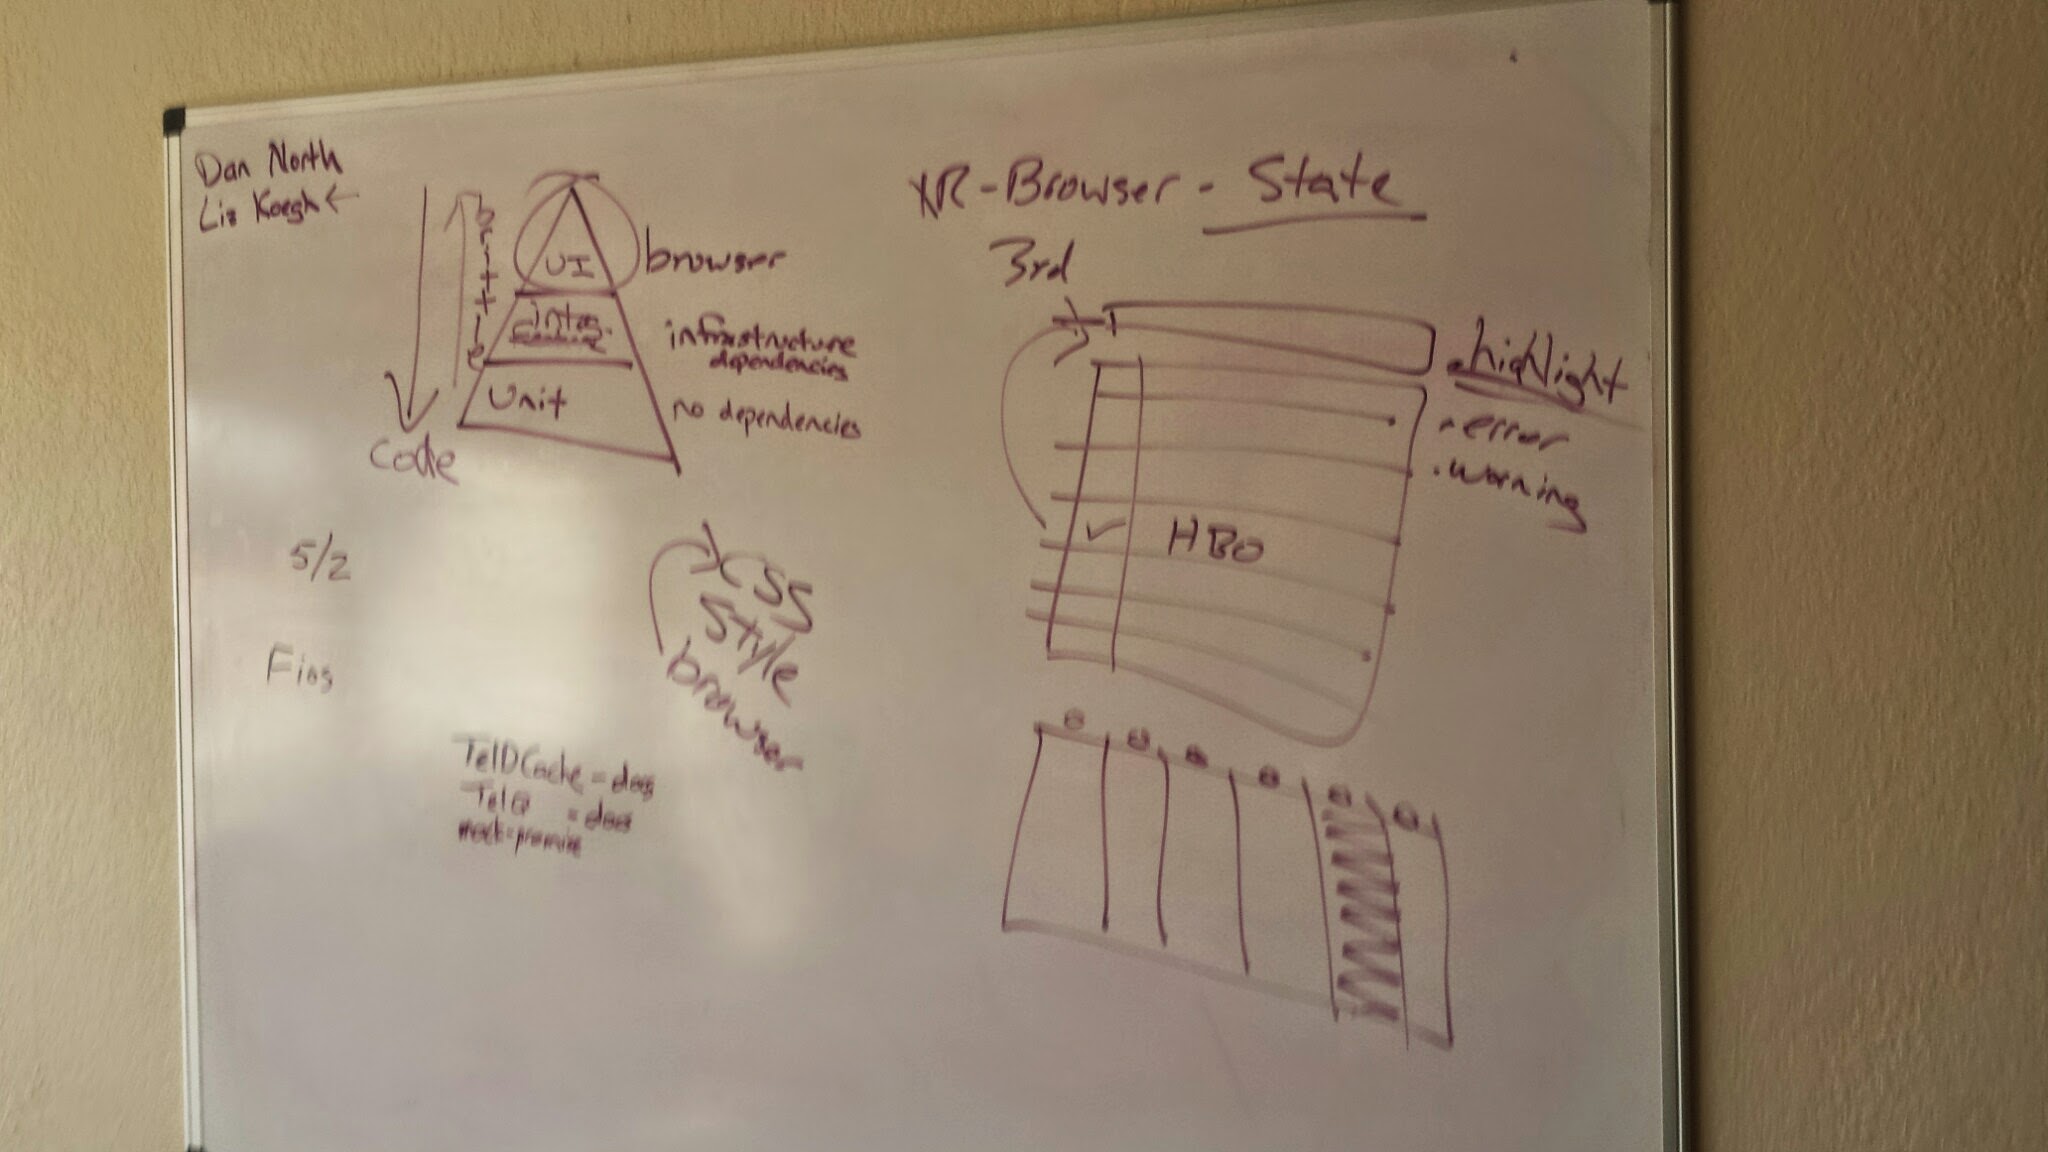 Dan North
Liz Koegh ←
brittle
UI
browser
Integ.
infrastructure
dependencies
Unit
no dependencies
Code
5/2
Fios
CSS
Style
browser
TelDCache = doos
TelQ = doo
mock = promise
XR-Browser - State
3rd
• highlight
• error
• warning
✓ HBO